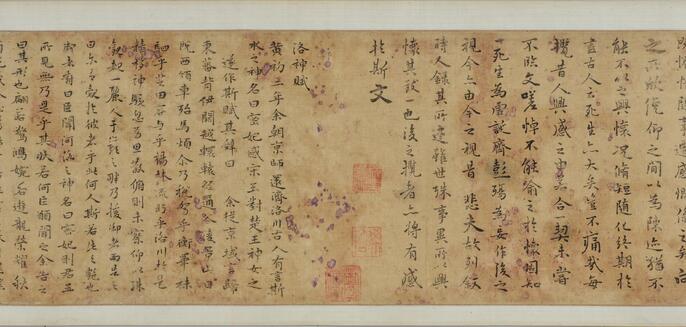 之所欣俛仰之間以為陳迹猶不
能不以之興懷況脩短隨化終期於
盡古人云死生亦大矣豈不痛哉每
攬昔人興感之由若合一契未嘗
不臨文嗟悼不能喻之於懷固知
一死生為虛誕齊彭殤為妄作後之
視今亦由今之視昔悲夫故列敘
時人錄其所述雖世殊事異所以興
懷其致一也後之攬者亦將有感
於斯文
洛神賦
黃初三年余朝京師還濟洛川古人有言斯
水之神名曰宓妃感宋玉對楚王神女之
遂作斯賦其辭曰 余從京域言歸
東藩背伊闕越轘轅經通谷陵景山日
既西傾車殆馬煩爾乃稅駕乎蘅皋秣
駟乎芝田容與乎楊林流眄乎洛川於是
精移神駭忽焉思散俯則未察仰以殊
觀睹一麗人于巖之畔乃援御者而告之
曰爾有覿於彼者乎此何人斯若此之豔也
御者對曰臣聞河洛之神名曰宓妃則君王
所見無乃是乎其狀若何臣願聞之余告之
曰其形也翩若驚鴻婉若遊龍榮耀秋